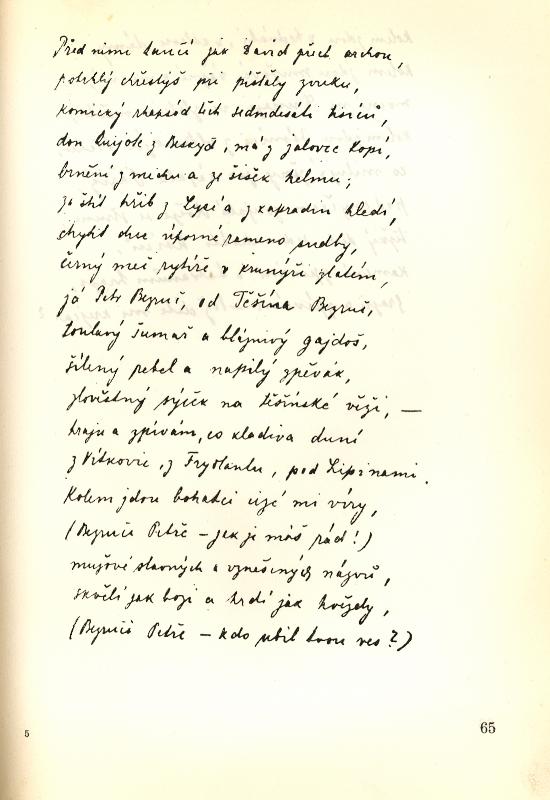 Před nimi tančí jak David před archou,
potrhlý chrostýš při píšťaly zvuku,
komický rhapsód těch sedmdesáti tisíců,
don Quijote z Beskyd, má z jalovce kopí,
brnění z mechu a ze šišek helmu;
za štít hřib z Lysé a z kapradin hledí,
chytit chce úporné rameno sudby,
černý meč rytíře v krunýři zlatém,
já Petr Bezruč, od Těšína Bezruč,
toulavý šumař a bláznivý gajdoš,
šílený rebel a napilý zpěvák,
zlověstný sýček na těšínské věži, —
hraju a zpívám, co kladiva duní
z Vítkovic, z Frydlantu, pod Lipinami.
Kolem jdou boháči cizé mi víry,
(Bezruči Petře – jak je máš rád!)
mužové slavných a vznešených názvů,
skvělí jak bozi a hrdí jak hvězdy,
(Bezruči Petře – kdo ubil tvou ves?)
5
65